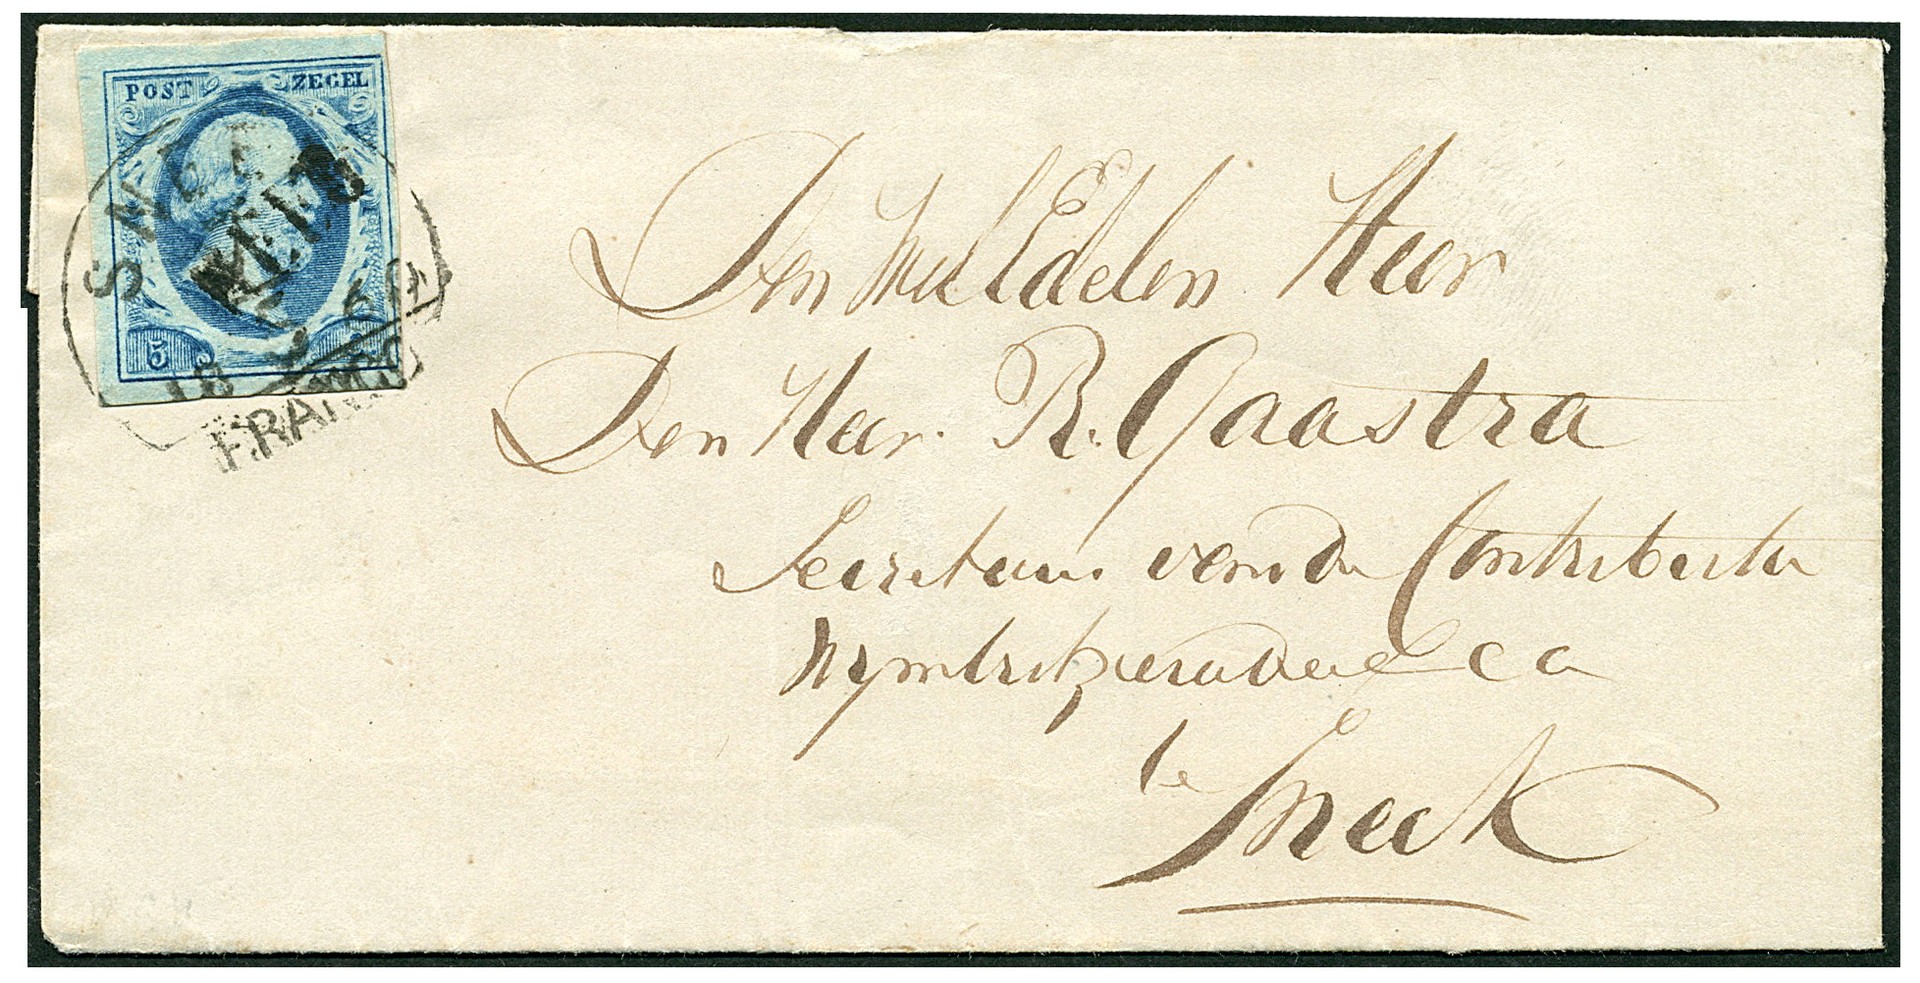 POST ZEGEL
5
SNEEK
FRANCO
Den Wel Edelen Heer
Den Heer R. Gaastra
Secretaris van de Contributie
te
Sneek